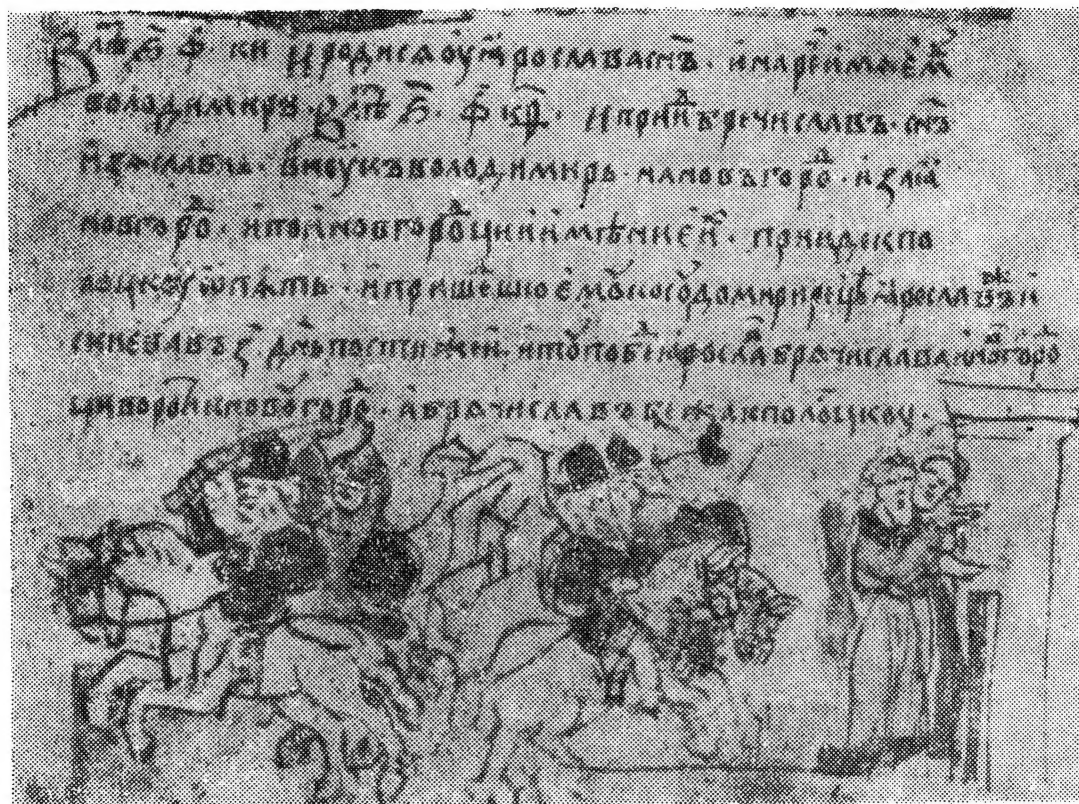 В лѣⷮ ҂ѕ҃ ф҃ · ки · И родисѧ оу ꙗрослава сн҃ъ · и нарⷱ҇е имѧ емⷹ
володимиръ · В лѣⷮ ҂ѕ҃ · ф҃ кѳ҃ · И приⷣ бречиславъ · сн҃ъ
изѧславль · вноукъ володимирь · на новъгороⷣ · и заꙗ
новгороⷣ · и поиⷨ новгороⷣци и имѣние иⷯ · приидⷷ к по
лоцкоу ѡпѧть · и пришеⷣшю емⷹ рецѣ ꙗрославⷤ и
с киева въ з҃ · дн҃ь постиже и · и тоу побⷣи ꙗрославⷡ брѧчислава и новⷢ҇ороⷣ
ци вороти к новоугороⷣ · а брѧчиславъ бѣжа к полоцкоу ·